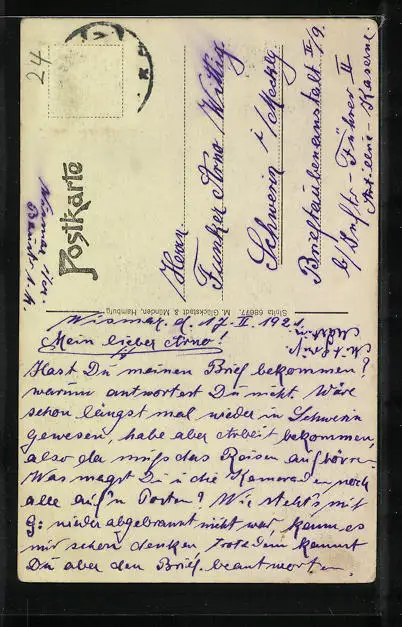 24
Postkarte
Herrn
Funker Arno Wittig
Schwerin i/Meckl.
Brieftaubenanstalt II/9.
b/ Inftr.-Führer II
Artillerie-Kaserne
Sinta 68677. M. Glückstadt & Münden, Hamburg
Wismar, d. 17. II. 1921.
Mein lieber Arno!
Hast Du meinen Brief bekommen?
warum antwortest Du nicht. Wäre
schon längst mal wieder in Schwerin
gewesen, habe aber Arbeit bekommen,
also da muß das Reisen aufhören.
Was magst Du u die Kameraden noch
alle auf'n Posten? Wie steht's mit
G: wieder abgebrannt nicht wahr, kann es
mir schon denken, trotzdem kannst
Du aber den Brief beantworten.